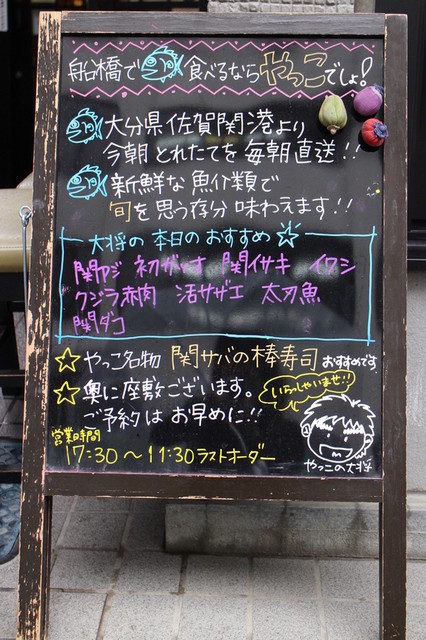 船橋で食べるならやっこでしょ!
大分県佐賀関港より
今朝とれたてを毎朝直送!!
新鮮な魚介類で
旬を思う存分味わえます!!
大将の本日のおすすめ☆
関アジ 初ガツオ 関イサキ イワシ
クジラ赤肉 活サザエ 太刀魚
関ダコ
☆やっこ名物 関サバの棒寿司 おすすめです
☆奥に座敷ございます。
ご予約はお早めに!!
いらっしゃいませ!!
やっこの大将
営業時間
17:30〜11:30ラストオーダー